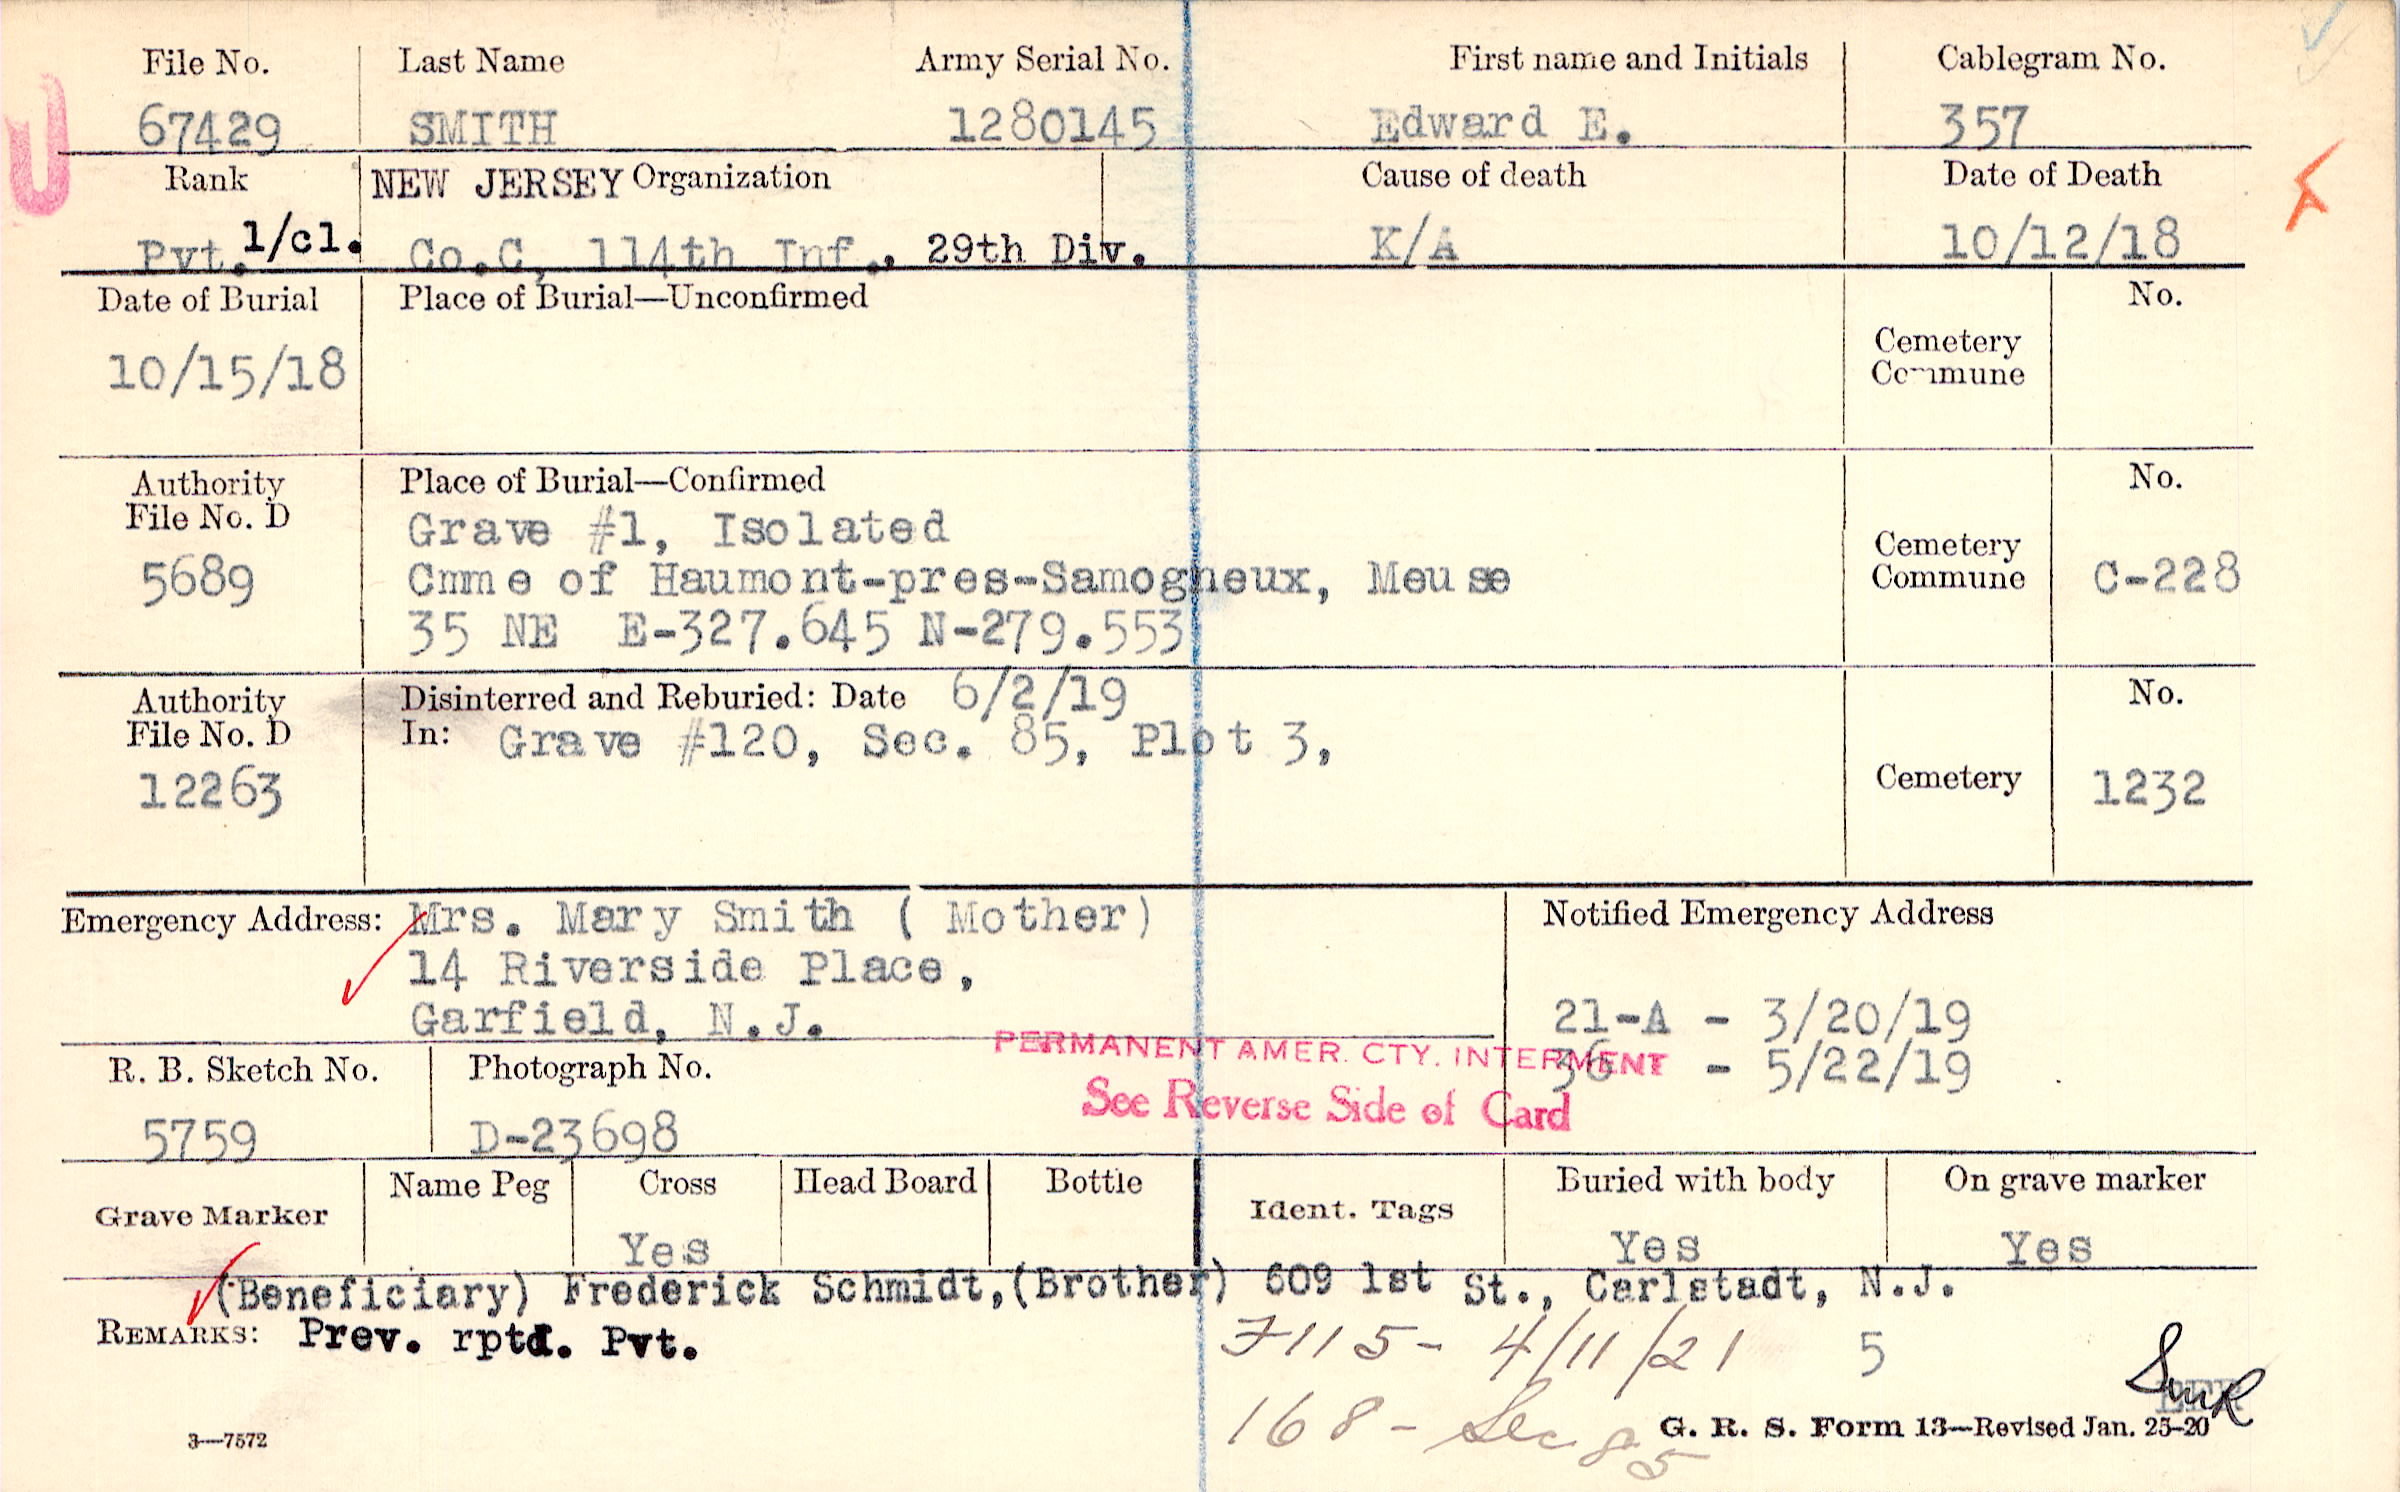 File No. Last Name Army Serial No. First name and Initials Cablegram No.
67429 SMITH 1280145 Edward E. 357
Rank NEW JERSEY Organization Cause of death Date of Death
Pvt. 1/cl. Co.C, 114th Inf., 29th Div. K/A 10/12/18
Date of Burial Place of Burial—Unconfirmed No.
10/15/18 Cemetery
Commune
Authority Place of Burial—Confirmed No.
File No. D Grave #1, Isolated
5689 Cmme of Haumont-pres-Samogneux, Meuse Cemetery
Commune C-228
35 NE E-327.645 N-279.553
Authority Disinterred and Reburied: Date 6/2/19 No.
File No. D In: Grave #120, Sec. 85, Plot 3,
12263 Cemetery 1232
Emergency Address: Mrs. Mary Smith ( Mother) Notified Emergency Address
14 Riverside Place,
Garfield, N.J. 21-A - 3/20/19
PERMANENT AMER. CTY. INTERMENT
36 - 5/22/19
R. B. Sketch No. Photograph No.
See Reverse Side of Card
5759 D-23698
Grave Marker Name Peg Cross Head Board Bottle Ident. Tags Buried with body On grave marker
Yes Yes Yes
(Beneficiary) Frederick Schmidt,(Brother) 609 1st St., Carlstadt, N.J.
REMARKS: Prev. rptd. Pvt. 7115- 4/11/21 5
168 - Sec 85
3—7572 G. R. S. Form 13—Revised Jan. 25-20